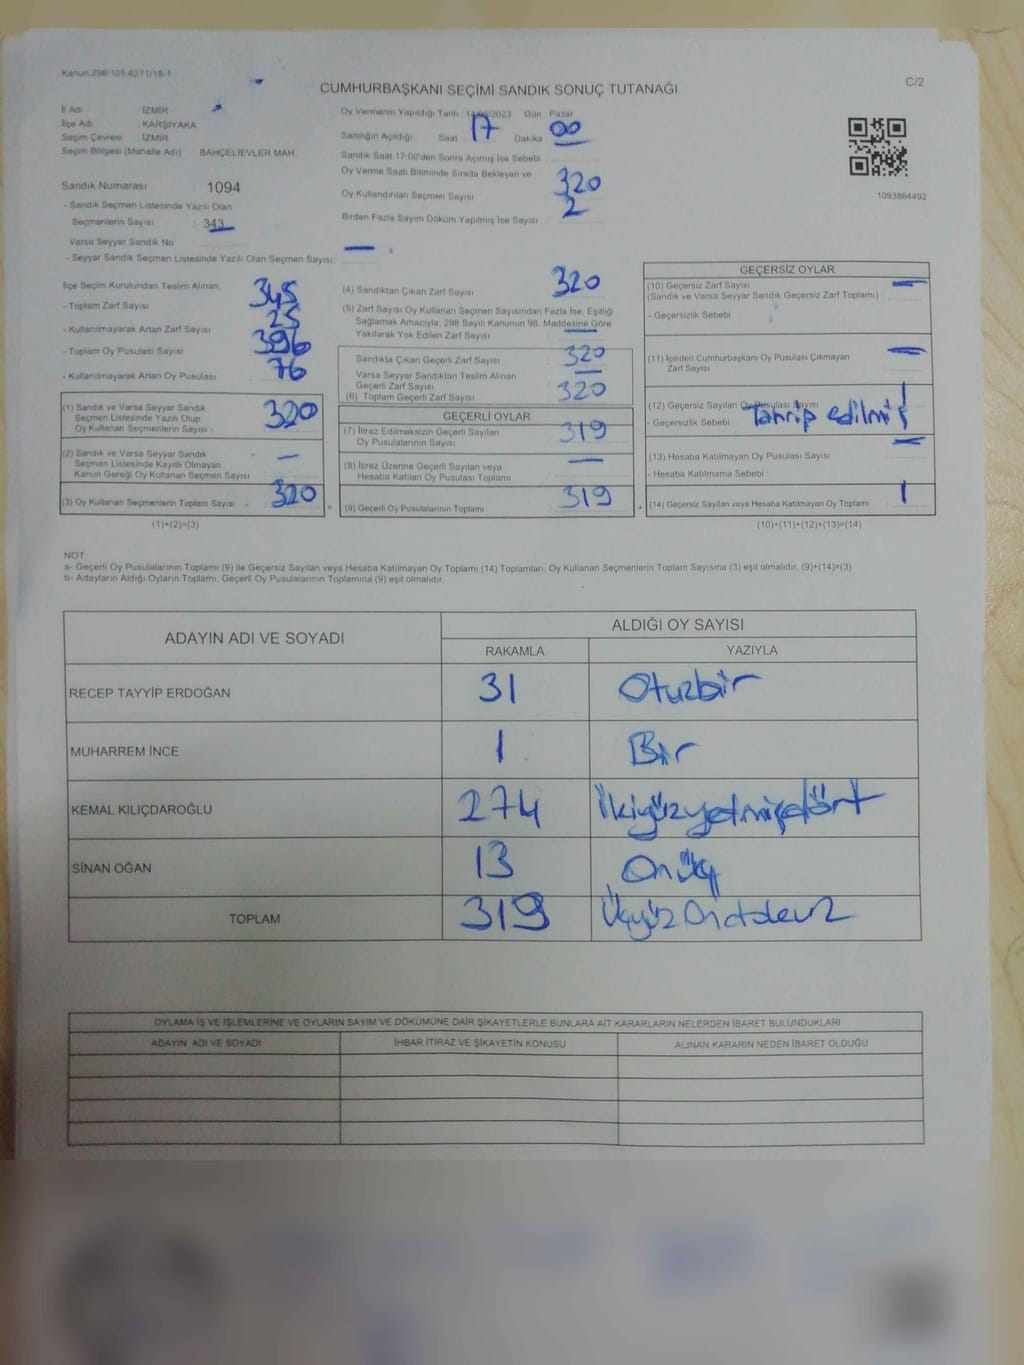 Kanun:298/105;6271/16-1
C/2
CUMHURBAŞKANI SEÇİMİ SANDIK SONUÇ TUTANAĞI
İl Adı İZMİR
İlçe Adı KARŞIYAKA
Seçim Çevresi İZMİR
Seçim Bölgesi (Mahalle Adı) BAHÇELİEVLER MAH
Sandık Numarası 1094
- Sandık Seçmen Listesinde Yazılı Olan
Seçmenlerin Sayısı : 343
Varsa Seyyar Sandık No
- Seyyar Sandık Seçmen Listesinde Yazılı Olan Seçmen Sayısı: —
Oy Vermenin Yapıldığı Tarih 14/05/2023 Gün Pazar
Sandığın Açıldığı Saat 17 Dakika 00
Sandık Saat 17:00'den Sonra Açımış İse Sebebi
Oy Verme Saati Bitiminde Sırada Bekleyen ve
Oy Kullandırılan Seçmen Sayısı 320
Birden Fazla Sayım Döküm Yapılmış İse Sayısı 2
1093864492
İlçe Seçim Kurulundan Teslim Alınan;
- Toplam Zarf Sayısı 345
- Kullanılmayarak Artan Zarf Sayısı 25
- Toplam Oy Pusulası Sayısı 396
- Kullanılmayarak Artan Oy Pusulası 76
(1) Sandık ve Varsa Seyyar Sandık
Seçmen Listesinde Yazılı Olup
Oy Kullanan Seçmenlerin Sayısı 320
(2) Sandık ve Varsa Seyyar Sandık
Seçmen Listesinde Kayıtlı Olmayan
Kanun Gereği Oy Kullanan Seçmen Sayısı —
(3) Oy Kullanan Seçmenlerin Toplam Sayısı 320
(1)+(2)=(3)
(4) Sandıktan Çıkan Zarf Sayısı 320
(5) Zarf Sayısı Oy Kullanan Seçmen Sayısından Fazla İse, Eşitliği
Sağlamak Amacıyla, 298 Sayılı Kanunun 98. Maddesine Göre
Yakılarak Yok Edilen Zarf Sayısı —
Sandıkta Çıkan Geçerli Zarf Sayısı 320
Varsa Seyyar Sandıktan Teslim Alınan
Geçerli Zarf Sayısı —
(6) Toplam Geçerli Zarf Sayısı 320
GEÇERLİ OYLAR
(7) İtiraz Edilmeksizin Geçerli Sayılan
Oy Pusulalarının Sayısı 319
(8) İtiraz Üzerine Geçerli Sayılan veya
Hesaba Katılan Oy Pusulası Toplamı —
(9) Geçerli Oy Pusulalarının Toplamı 319
GEÇERSİZ OYLAR
(10) Geçersiz Zarf Sayısı —
(Sandık ve Varsa Seyyar Sandık Geçersiz Zarf Toplamı)
- Geçersizlik Sebebi :
(11) İçinden Cumhurbaşkanı Oy Pusulası Çıkmayan
Zarf Sayısı —
(12) Geçersiz Sayılan Oy Pusulası Sayısı 1
- Geçersizlik Sebebi : Tahrip edilmiş
(13) Hesaba Katılmayan Oy Pusulası Sayısı —
- Hesaba Katılmama Sebebi
(14) Geçersiz Sayılan veya Hesaba Katılmayan Oy Toplamı 1
(10)+(11)+(12)+(13)=(14)
NOT
a- Geçerli Oy Pusulalarının Toplamı (9) ile Geçersiz Sayılan veya Hesaba Katılmayan Oy Toplamı (14) Toplamları, Oy Kullanan Seçmenlerin Toplam Sayısına (3) eşit olmalıdır. (9)+(14)=(3)
b- Adayların Aldığı Oyların Toplamı, Geçerli Oy Pusulalarının Toplamına (9) eşit olmalıdır.
ADAYIN ADI VE SOYADI ALDIĞI OY SAYISI
RAKAMLA YAZIYLA
RECEP TAYYİP ERDOĞAN 31 Otuzbir
MUHARREM İNCE 1 Bir
KEMAL KILIÇDAROĞLU 274 İkiyüzyetmişdört
SİNAN OĞAN 13 Onüç
TOPLAM 319 Üçyüz Ondokuz
OYLAMA İŞ VE İŞLEMLERİNE VE OYLARIN SAYIM VE DÖKÜMÜNE DAİR ŞİKAYETLERLE BUNLARA AİT KARARLARIN NELERDEN İBARET BULUNDUKLARI
ADAYIN ADI VE SOYADI İHBAR İTİRAZ VE ŞİKAYETİN KONUSU ALINAN KARARIN NEDEN İBARET OLDUĞU